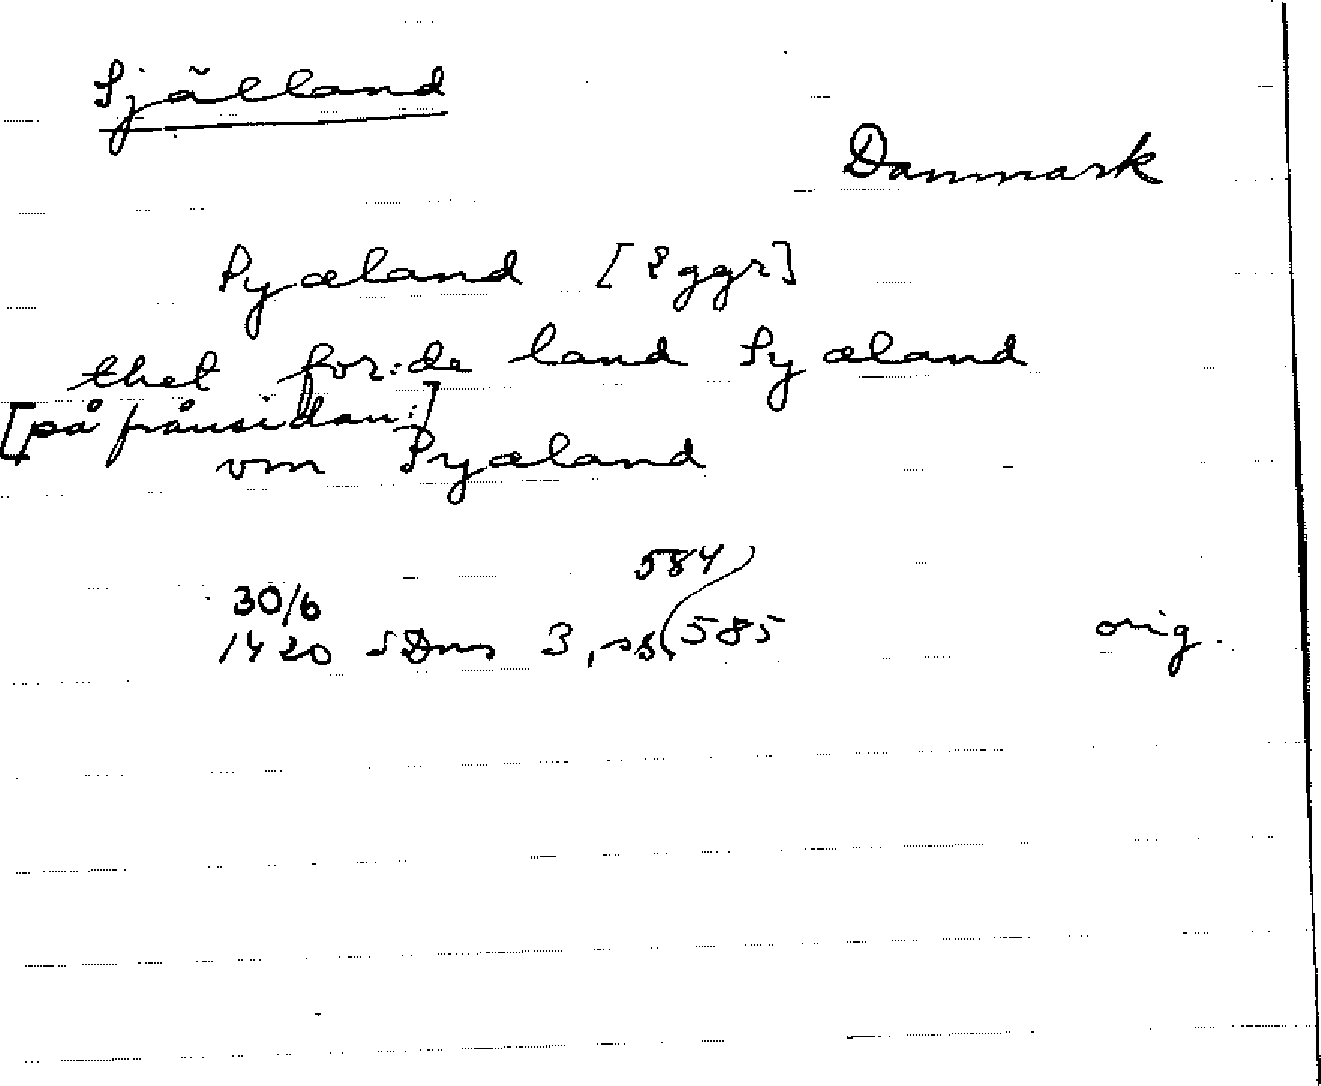 Själland
Danmark
Syæland [2 ggr]
thet for:de land Syæland
[på frånsidan:]
vm Syæland
584
30/6
1420 SDns 3, s 585
orig.